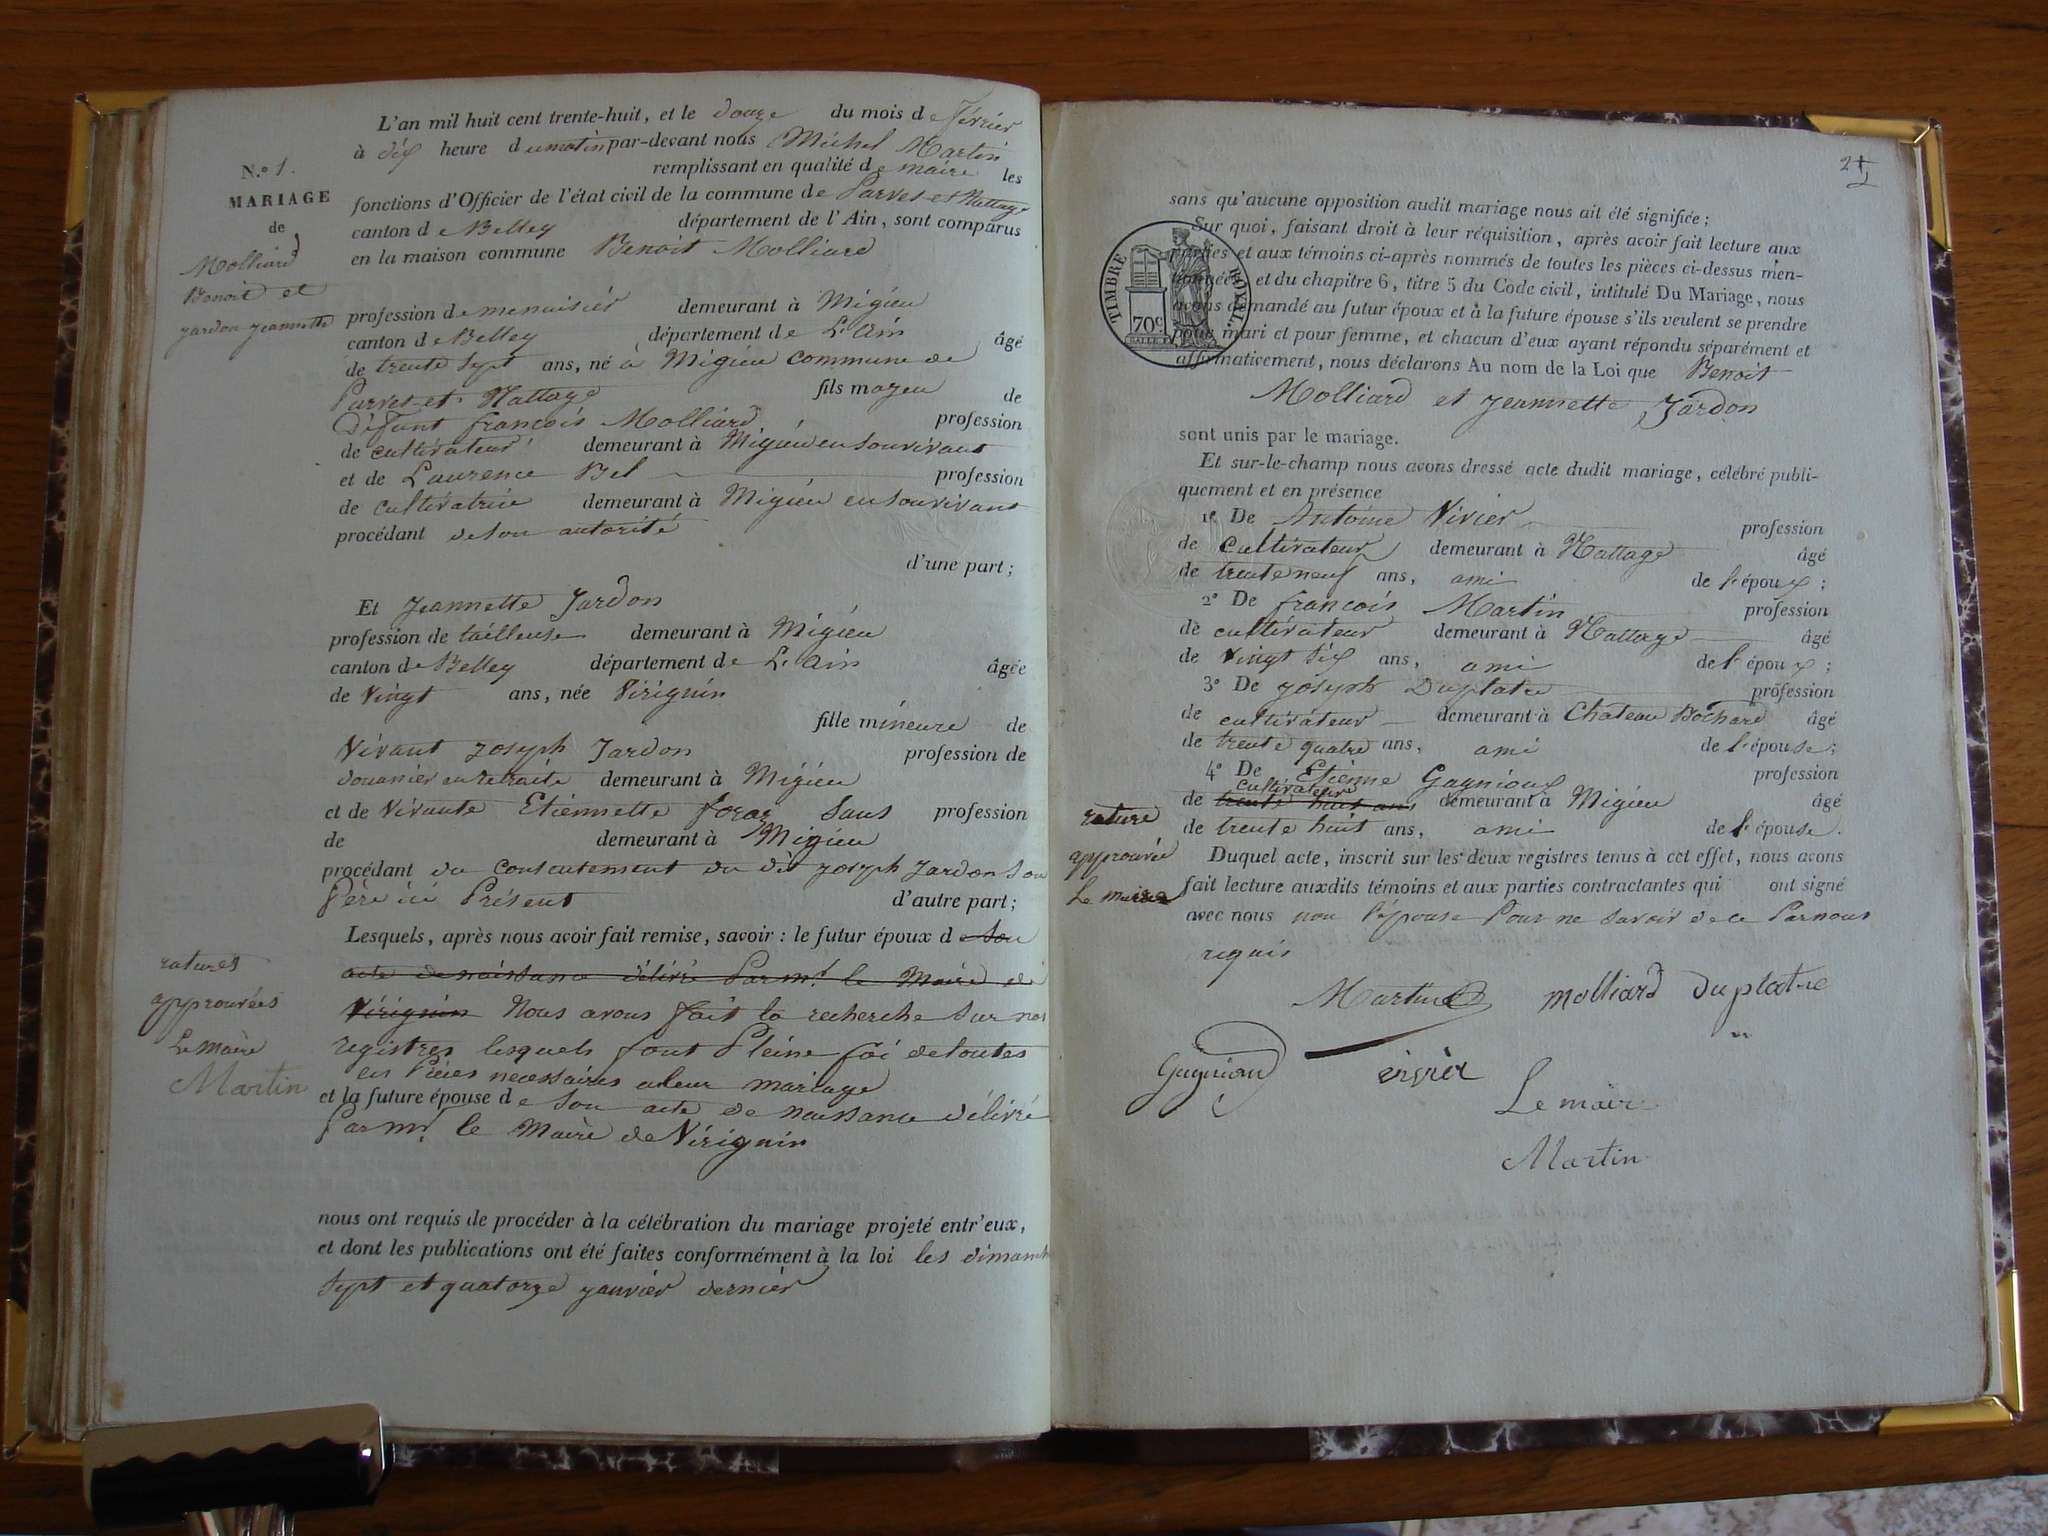 L'an mil huit cent trente-huit, et le douze du mois de février
à dix heure du matin par-devant nous Michel Martin
remplissant en qualité de maire les
fonctions d'Officier de l'état civil de la commune de Parves et Nattage
canton de Belley département de l'Ain, sont comparus
en la maison commune Benoit Molliard
N.º 1.
MARIAGE
de
Molliard
Benoit et
Jardon Jeannette
profession de menuisier demeurant à Migieu
canton de Belley département de L'ain âgé
de trente sept ans, né à Migieu commune de
Parves et Nattage fils majeu de
Défunt françois Molliard profession
de cultivateur demeurant à Migieu en son vivant
et de Laurence Bel profession
de cultivatrice demeurant à Migieu en son vivant
procédant de son autorité
d'une part;
Et Jeannette Jardon
profession de tailleuse demeurant à Migieu
canton de Belley département de L'ain âgée
de vingt ans, née Virignin
fille mineure de
Vivant Joseph Jardon profession de
douanier en retraite demeurant à Migieu
et de vivante Etiennette foraz sans profession
de demeurant à Migieu
procédant du consentement du dit Joseph Jardon son
Père ici Présent d'autre part;
Lesquels, après nous avoir fait remise, savoir : le futur époux de son
acte de naissance délivré Par mr. le Maire de
Virignin Nous avons fait la recherche sur nos
registres lesquels font Pleine foi de toutes
les Pièces necessaires a leur mariage
et la future épouse de son acte de naissance délivré
Par mr. le Maire de Virignin
ratures
approuvées
Le maire
Martin
nous ont requis de procéder à la célébration du mariage projeté entr'eux,
et dont les publications ont été faites conformément à la loi les dimanch
sept et quatorze janvier dernier
sans qu'aucune opposition audit mariage nous ait été signifiée;
Sur quoi, faisant droit à leur réquisition, après avoir fait lecture aux
parties et aux témoins ci-après nommés de toutes les pièces ci-dessus men-
tionnées, et du chapitre 6, titre 5 du Code civil, intitulé Du Mariage, nous
avons demandé au futur époux et à la future épouse s'ils veulent se prendre
pour mari et pour femme, et chacun d'eux ayant répondu séparément et
affirmativement, nous déclarons Au nom de la Loi que Benoit
Molliard et Jeannette Jardon
TIMBRE ROYAL
70c
sont unis par le mariage.
Et sur-le-champ nous avons dressé acte dudit mariage, célébré publi-
quement et en présence
1º De Antoine Vivier profession
de cultivateur demeurant à Nattage âgé
de trente neuf ans, ami de l'époux;
2º De françois Martin profession
de cultivateur demeurant à Nattage âgé
de vingt six ans, ami de l'époux;
3º De Joseph Duplatre profession
de cultivateur demeurant à Chateau Bochard âgé
de trente quatre ans, ami de l'épouse;
4º De Etienne Gagnioux profession
cultivateur
de trente huit ans demeurant à Migieu âgé
de trente huit ans, ami de l'épouse.
rature
approuvée
Le maire
Duquel acte, inscrit sur les deux registres tenus à cet effet, nous avons
fait lecture auxdits témoins et aux parties contractantes qui ont signé
avec nous non l'épouse Pour ne savoir de ce Par nous
requis
Martin Molliard Duplatre
Gagnioux vivier
Le maire
Martin